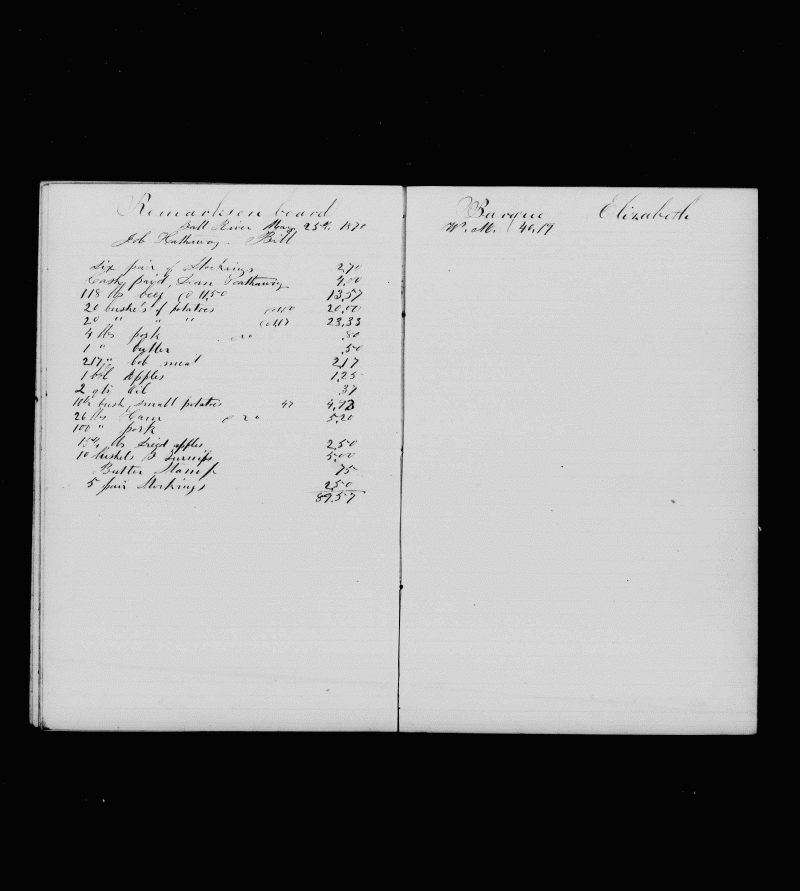 Remarks on board
Fall River May 25th. 1870
Job Hathway Bill
Six pair of Stockings 2,70
Cash paid, Hathaway 4,00
118 lbs beef @ 11,50 13,57
20 bushels of potatoes @1.00 20,00
20 " " " @1.17 23,33
4 lbs pork @ 20 ,80
1 " butter ,50
217 " meat 2,17
1 bbl Apples 1,25
2 qts Oil 37
bush small potatoes 47 4,93
26 lbs Ham @ 20 5,20
100 " pork
lbs dried apples 2,50
10 bushels Turnips 5,00
Butter Stamp 75
5 pair Stockings 2,50
89,57
Barque Elizabeth
W. M. 40,17